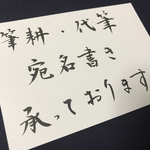 筆耕・代筆
宛名書き
承っております